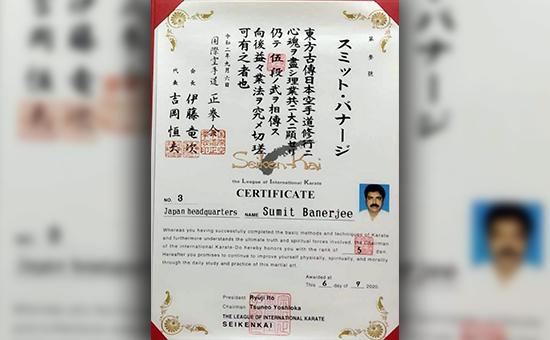 第参號
スミット・バナージ
東方古傳日本空手道修行ニ
心魂ヲ盡シ理業共ニ大ニ顕
仍テ伍段ノ武ヲ相傳ス
向後益々業法ヲ究メ切瑳
可有之者也
令和二年九月六日
国際空手道 正拳会
会長 伊藤竜次
代表 吉岡恒夫
Seiken-Kai
the League of International Karate
CERTIFICATE
NO. 3
Japan headquarters NAME Sumit Banerjee
Whereas you having successfully completed the basic methods and techniques of Karate
and furthermore understands the ultimate truth and spiritual forces involved, the Chairman
of the international Karate-Do hereby honors you with the rank of 5 dan.
Hereafter you promises to continue to improve yourself physically, spiritually, and morally
through the daily study and practice of this martial art.
Awarded at
This 6 day of 9 2020.
President Ryuji Ito
Chairman Tsuneo Yoshioka
THE LEAGUE OF INTERNATIONAL KARATE
SEIKENKAI